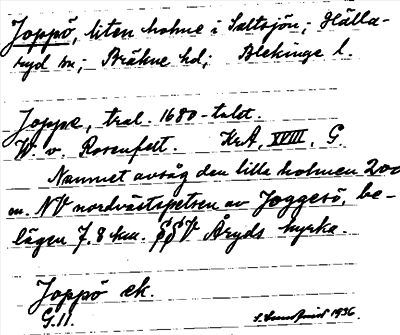 Joppö, liten holme i Saltsjön; Hälla-
ryd sn; Bräkne hd; Blekinge l.
Joppe, trol. 1680-talet.
W. v. Rosenfelt. KrA, XVIII, G.
Namnet avsåg den lille holmen 200
m. NV nordvästspetsen av Joggesö, be-
lägen 7.8 km. Åryds kyrka.
Joppö ek.
G. 11. 1936.